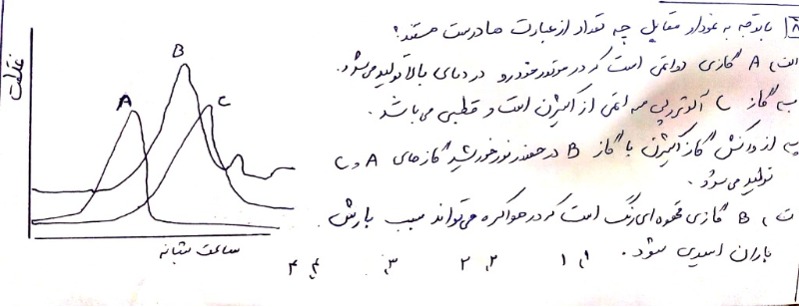 ۸) باتوجه به نمودار مقابل چه تعداد از عبارت ها درست هستند؟
الف) A گازی دو اتمی است که در موتور خودرو در دمای بالا تولید می‌شود.
ب) گاز C آلوتروپی سه اتمی از اکسیژن است و قطبی می باشد.
پ) از واکنش گاز اکسیژن با گاز B در حضور نور خورشید گازهای A و C
تولید می شود.
ت) B گازی قهوه ای رنگ است که در هوا کره می‌تواند سبب بارش
باران اسیدی شود.
۱) ۱ ۲) ۲ ۳) ۳ ۴) ۴
غلظت
A
B
C
ساعت شبانه